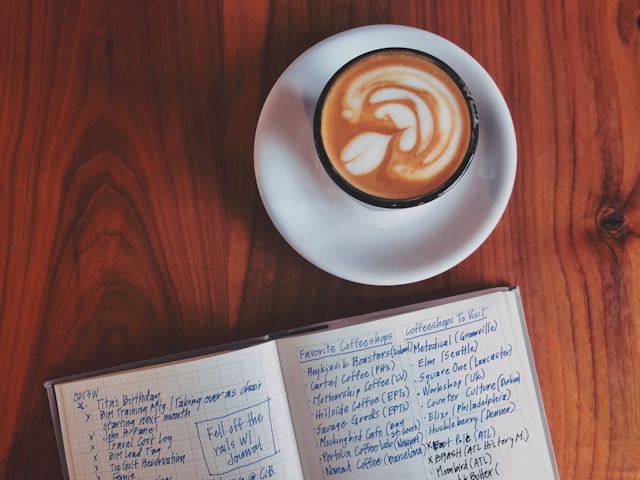 Tita's Birthday
x BIM Training Mtg / Taking over as chair
starting next month
x Travel Cost Log
x BIM Lead Tag
x Top Golf Reservation
Fell off the
rails w/
Journal
Favorite Coffeeshops
· Reykjavik Roasters
· Cartel Coffee (PHX)
· Mothership Coffee (LV)
· Hillside Coffee (EPTX)
· Savage Goods (EPTX)
· Mockingbird Cafe (Bay St. Louis)
· Portola Coffee Labs (Newport)
· Nomad Coffee (Barcelona)
Coffeeshops To Visit
· Methodical (Greenville)
· Elm (Seattle)
· Square One (Lancaster)
· Workshop (UK)
· Counter Culture (Durham)
· Elixr (Philadelphia)
· Huckleberry (Denver)
x East Pole (ATL)
x BRASH (ATL History M.)
Mombird (ATL)
Butter (